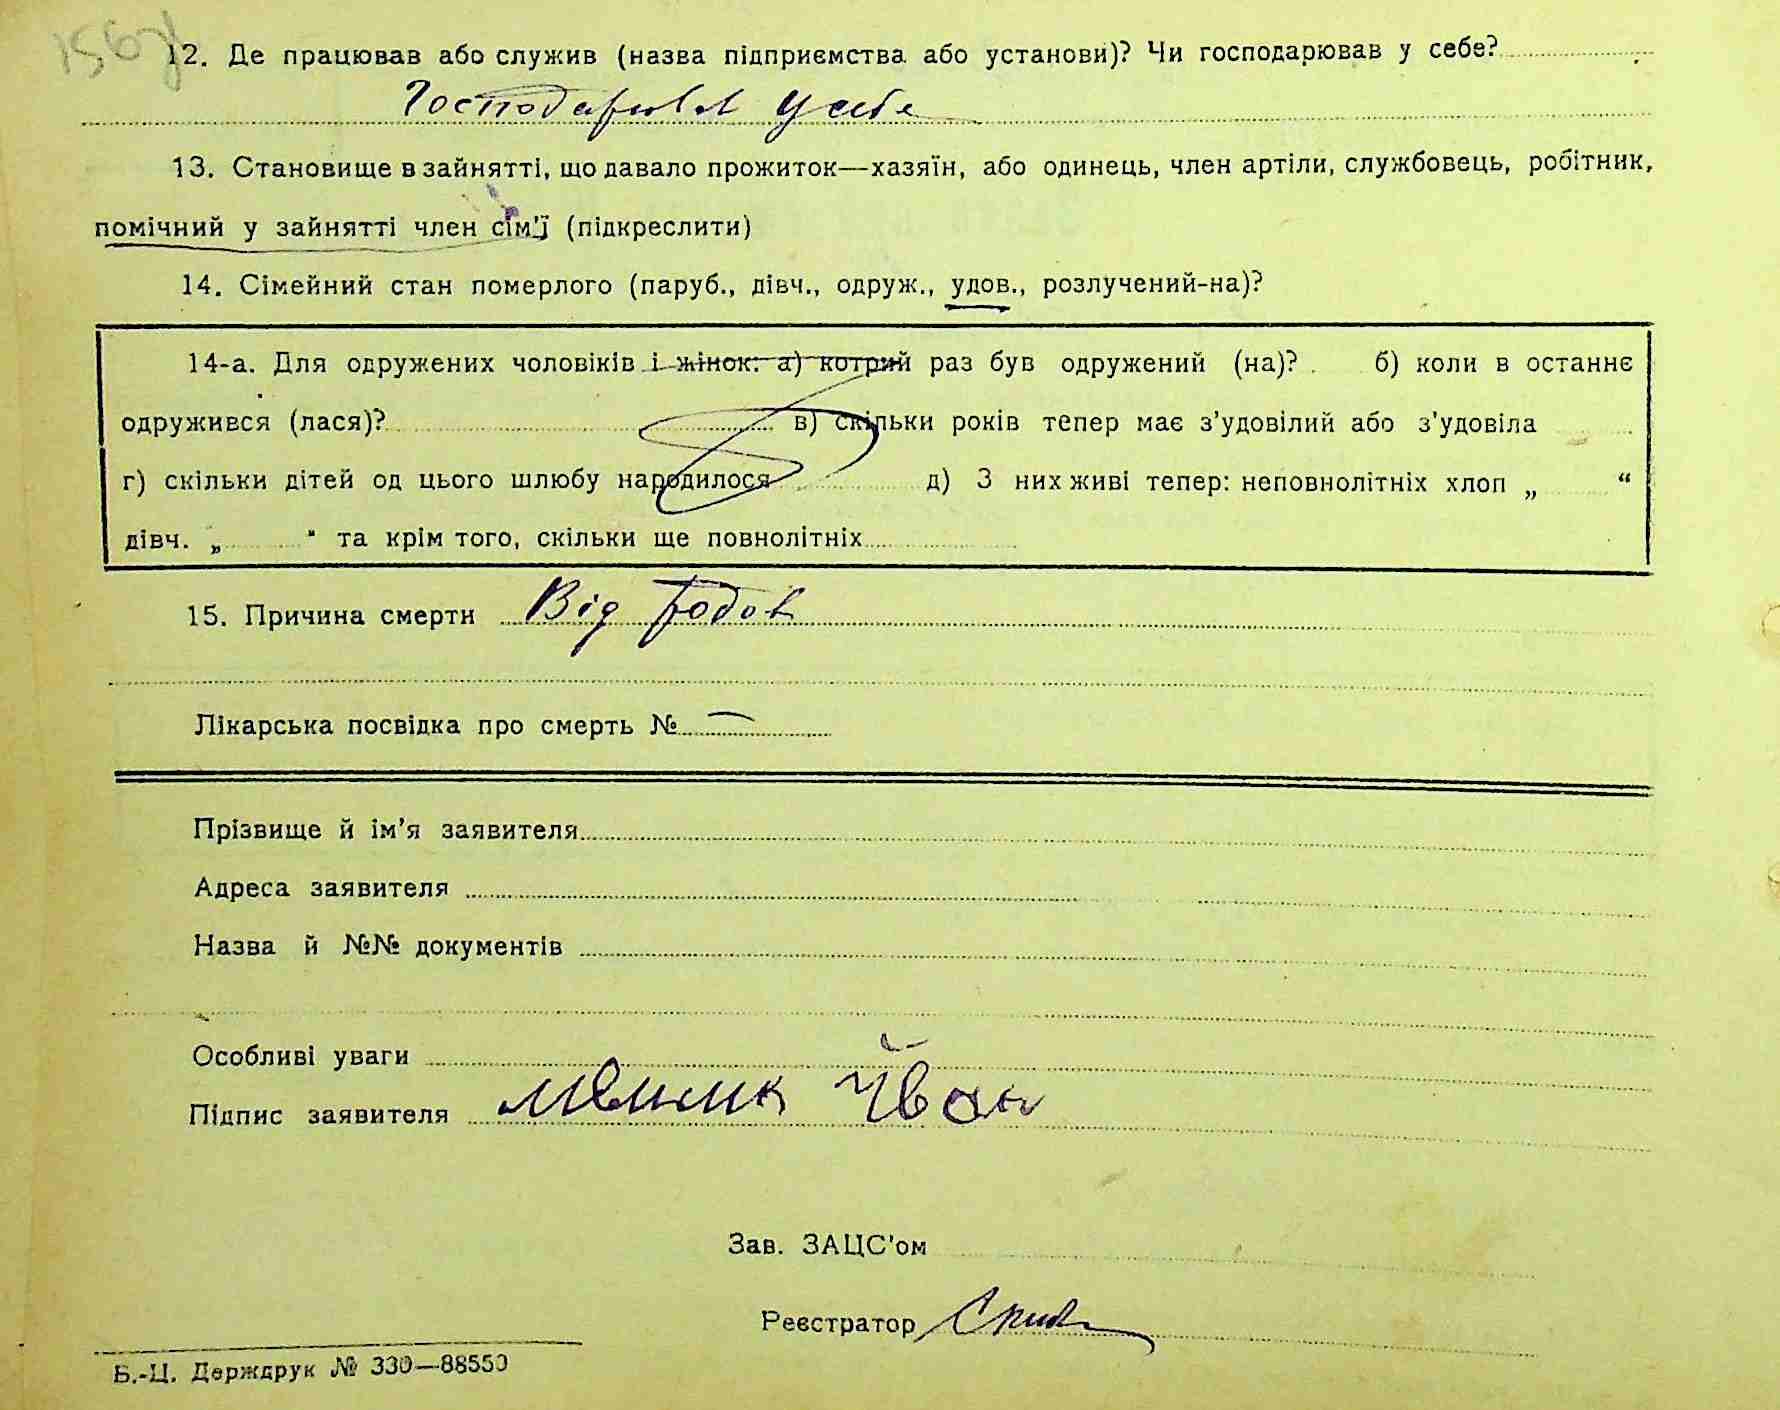 156
12. Де працював або служив (назва підприємства або установи)? Чи господарював у себе?
Господарювал у себе
13. Становище в зайнятті, що давало прожиток—хазяїн, або одинець, член артіли, службовець, робітник,
помічний у зайнятті член сім'ї (підкреслити)
14. Сімейний стан померлого (паруб., дівч., одруж., удов., розлучений-на)?
14-а. Для одружених чоловіків і жінок: а) котрий раз був одружений (на)? . б) коли в останнє
одружився (лася)? в) скільки років тепер має з’удовілий або з’удовіла
г) скільки дітей од цього шлюбу народилося д) З них живі тепер: неповнолітніх хлоп „ “
дівч. „ “ та крім того, скільки ще повнолітніх
15. Причина смерти Від родов
Лікарська посвідка про смерть № —
Прізвище й ім’я заявителя
Адреса заявителя
Назва й №№ документів
Особливі уваги
Підпис заявителя Мельник Йван
Зав. ЗАЦС’ом
Реєстратор
Б.-Ц. Держдрук № 330—88550